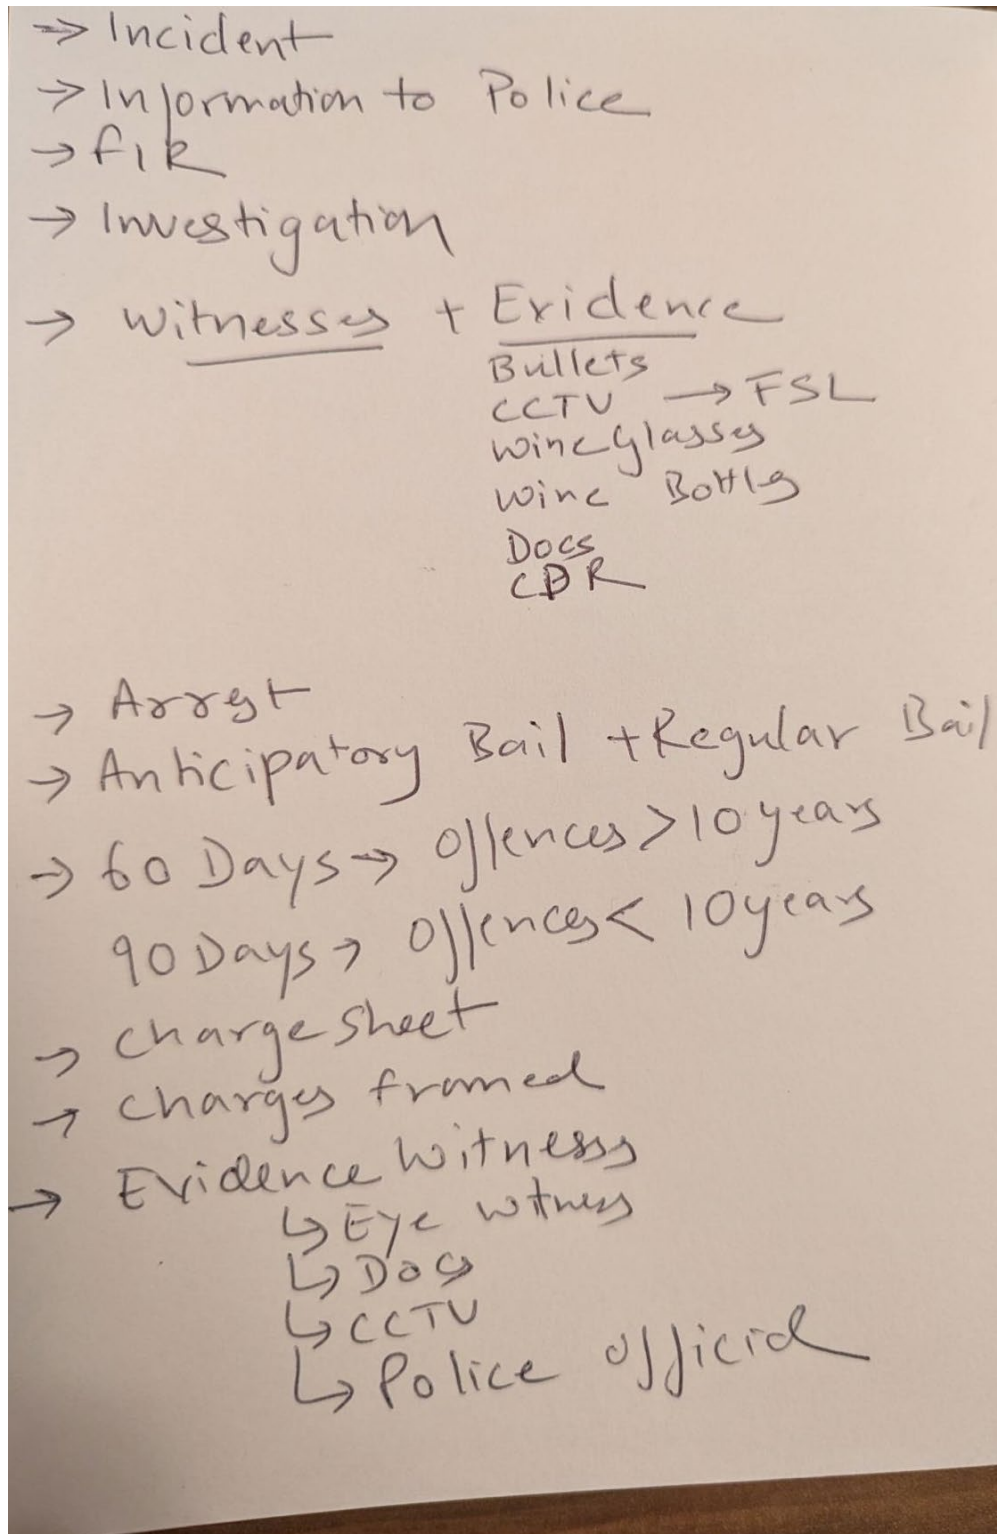 → Incident
→ Information to Police
→ FIR
→ Investigation
→ Witnesses + Evidence
Bullets
CCTV → FSL
Wine Glasses
Wine Bottles
Docs
CDR
→ Arrest
→ Anticipatory Bail + Regular Bail
→ 60 Days → Offences > 10 years
90 Days → Offences < 10 years
→ Charge sheet
→ Charges framed
→ Evidence Witness
↳ Eye witness
↳ Docs
↳ CCTV
↳ Police official